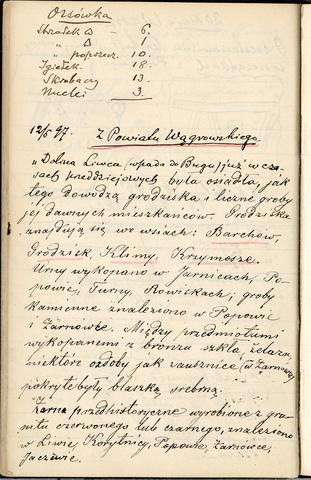 Orsówka
Strzałek △ – 6.
„ △ 1
„ poprzecz. 10.
Igiełek. 18.
Skrobaczy 13.
Nuclei 3.
12/5 97. Z Powiatu Węgrowskiego.
„Dolina Liwca (wpada do Bugu) już w cza-
sach przeddziejowych była osiadła, jak
tego dowodzą grodziska i liczne groby
jej dawnych mieszkańców. Grodziska
znajdują się we wsiach: Barchów,
Grodzisk, Klimy, Krzymosze.
Urny wykopano w Jarnicach, Po-
powie, Turny, Rowiskach; groby
kamienne znaleziono w Popowie
i Żarnówce. Między przedmiotami
wykopanemi z bronzu szkła, żelaza,
niektóre ozdoby jak zausznice (w Żarnówce)
pokryte były blaszką srebrną.
Żarna przedhistoryczne wyrobione z gra-
nitu czerwonego lub czarnego, znaleziono
w Liwie, Korytnicy, Popowie, Żarnówce,
Jaczewie.